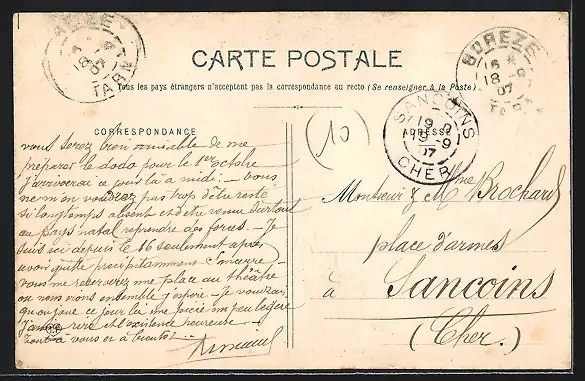 CARTE POSTALE
Tous les pays étrangers n'acceptent pas la correspondance au recto (Se renseigner à la Poste)
CORRESPONDANCE
ADRESSE
SOREZE
18 -9
07
TARN
SOREZE
18 -9
07
SANCOINS
19 -9
07
CHER
10
vous serez bien aimable de me
préparer le dodo pour le 1er octobre
J'arriverai ce jour là à midi. - Vous
ne m'en voudrez pas trop d'être resté
si longtemps absent et d'être venu surtout
au pays natal reprendre des forces. - Je
suis ici depuis le 16 seulement après
avoir quitté précipitamment
vous me réserverez une place au théâtre
où nous irons ensemble j'espère - Je voudrais
que on joue ce jour là une pièce un peu légère
J'aime rire et l'existence heureuse.
Tout à vous et à bientôt.
Monsieur & Mme Brochard
place d'armes
à Sancoins
(Cher)